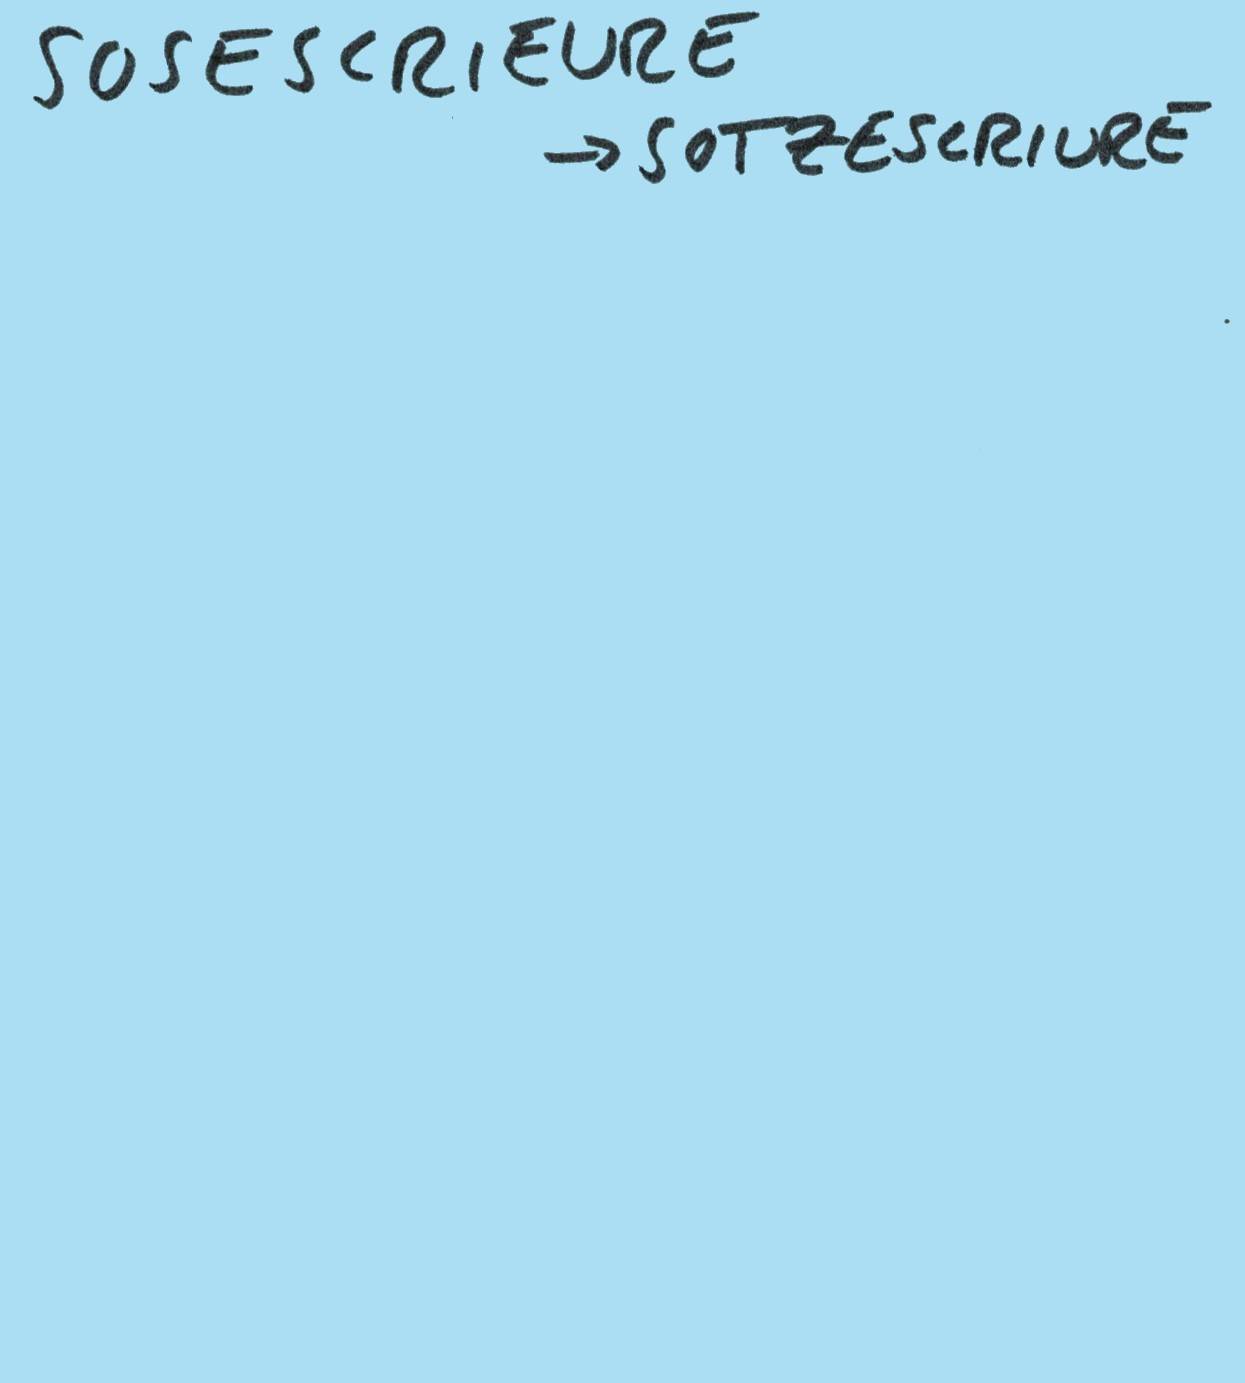 SOSESCRIEURE
→SOTZESCRIURE